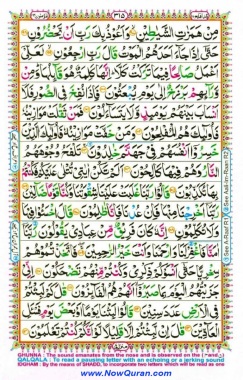 ٣١٥
مِنْ هَمَزٰتِ الشَّيٰطِيْنِ وَاَعُوْذُ بِكَ رَبِّ اَنْ يَّحْضُرُوْنِ
حَتّٰى اِذَا جَآءَ اَحَدَهُمُ الْمَوْتُ قَالَ رَبِّ ارْجِعُوْنِ لَعَلِّىْ
اَعْمَلُ صَالِحًا فِيْمَا تَرَكْتُ كَلَّا اِنَّهَا كَلِمَةٌ هُوَ قَآئِلُهَا وَمِنْ
وَّرَآئِهِمْ بَرْزَخٌ اِلٰى يَوْمِ يُبْعَثُوْنَ فَاِذَا نُفِخَ فِى الصُّوْرِ فَلَآ
اَنْسَابَ بَيْنَهُمْ يَوْمَئِذٍ وَّلَا يَتَسَآءَلُوْنَ فَمَنْ ثَقُلَتْ مَوَازِيْنُهٗ
فَاُولٰٓئِكَ هُمُ الْمُفْلِحُوْنَ وَمَنْ خَفَّتْ مَوَازِيْنُهٗ فَاُولٰٓئِكَ الَّذِيْنَ
خَسِرُوْٓا اَنْفُسَهُمْ فِىْ جَهَنَّمَ خٰلِدُوْنَ تَلْفَحُ وُجُوْهَهُمُ
النَّارُ وَهُمْ فِيْهَا كٰلِحُوْنَ اَلَمْ تَكُنْ اٰيٰتِىْ تُتْلٰى عَلَيْكُمْ فَكُنْتُمْ
بِهَا تُكَذِّبُوْنَ قَالُوْا رَبَّنَا غَلَبَتْ عَلَيْنَا شِقْوَتُنَا وَكُنَّا قَوْمًا ضَآلِّيْنَ
رَبَّنَآ اَخْرِجْنَا مِنْهَا فَاِنْ عُدْنَا فَاِنَّا ظٰلِمُوْنَ قَالَ اخْسَئُوْا فِيْهَا
وَلَا تُكَلِّمُوْنِ اِنَّهٗ كَانَ فَرِيْقٌ مِّنْ عِبَادِىْ يَقُوْلُوْنَ رَبَّنَآ اٰمَنَّا
فَاغْفِرْ لَنَا وَارْحَمْنَا وَاَنْتَ خَيْرُ الرّٰحِمِيْنَ فَاتَّخَذْتُمُوْهُمْ
سِخْرِيًّا حَتّٰٓى اَنْسَوْكُمْ ذِكْرِىْ وَكُنْتُمْ مِّنْهُمْ تَضْحَكُوْنَ اِنِّىْ
جَزَيْتُهُمُ الْيَوْمَ بِمَا صَبَرُوْٓا اَنَّهُمْ هُمُ الْفَآئِزُوْنَ قٰلَ كَمْ لَبِثْتُمْ
فِى الْاَرْضِ عَدَدَ سِنِيْنَ قَالُوْا لَبِثْنَا يَوْمًا اَوْ بَعْضَ يَوْمٍ فَسْئَلِ الْعَآدِّيْنَ
قٰلَ اِنْ لَّبِثْتُمْ اِلَّا قَلِيْلًا لَّوْ اَنَّكُمْ كُنْتُمْ تَعْلَمُوْنَ
GHUNNA : The sound emanates from the nose and is observed on the
QALQALA : To read a pausing letter with an echoing or a jerking sound
IDGHAM : By the means of SHADD, to incorporate two letters which will be read as one
www.NowQuran.com